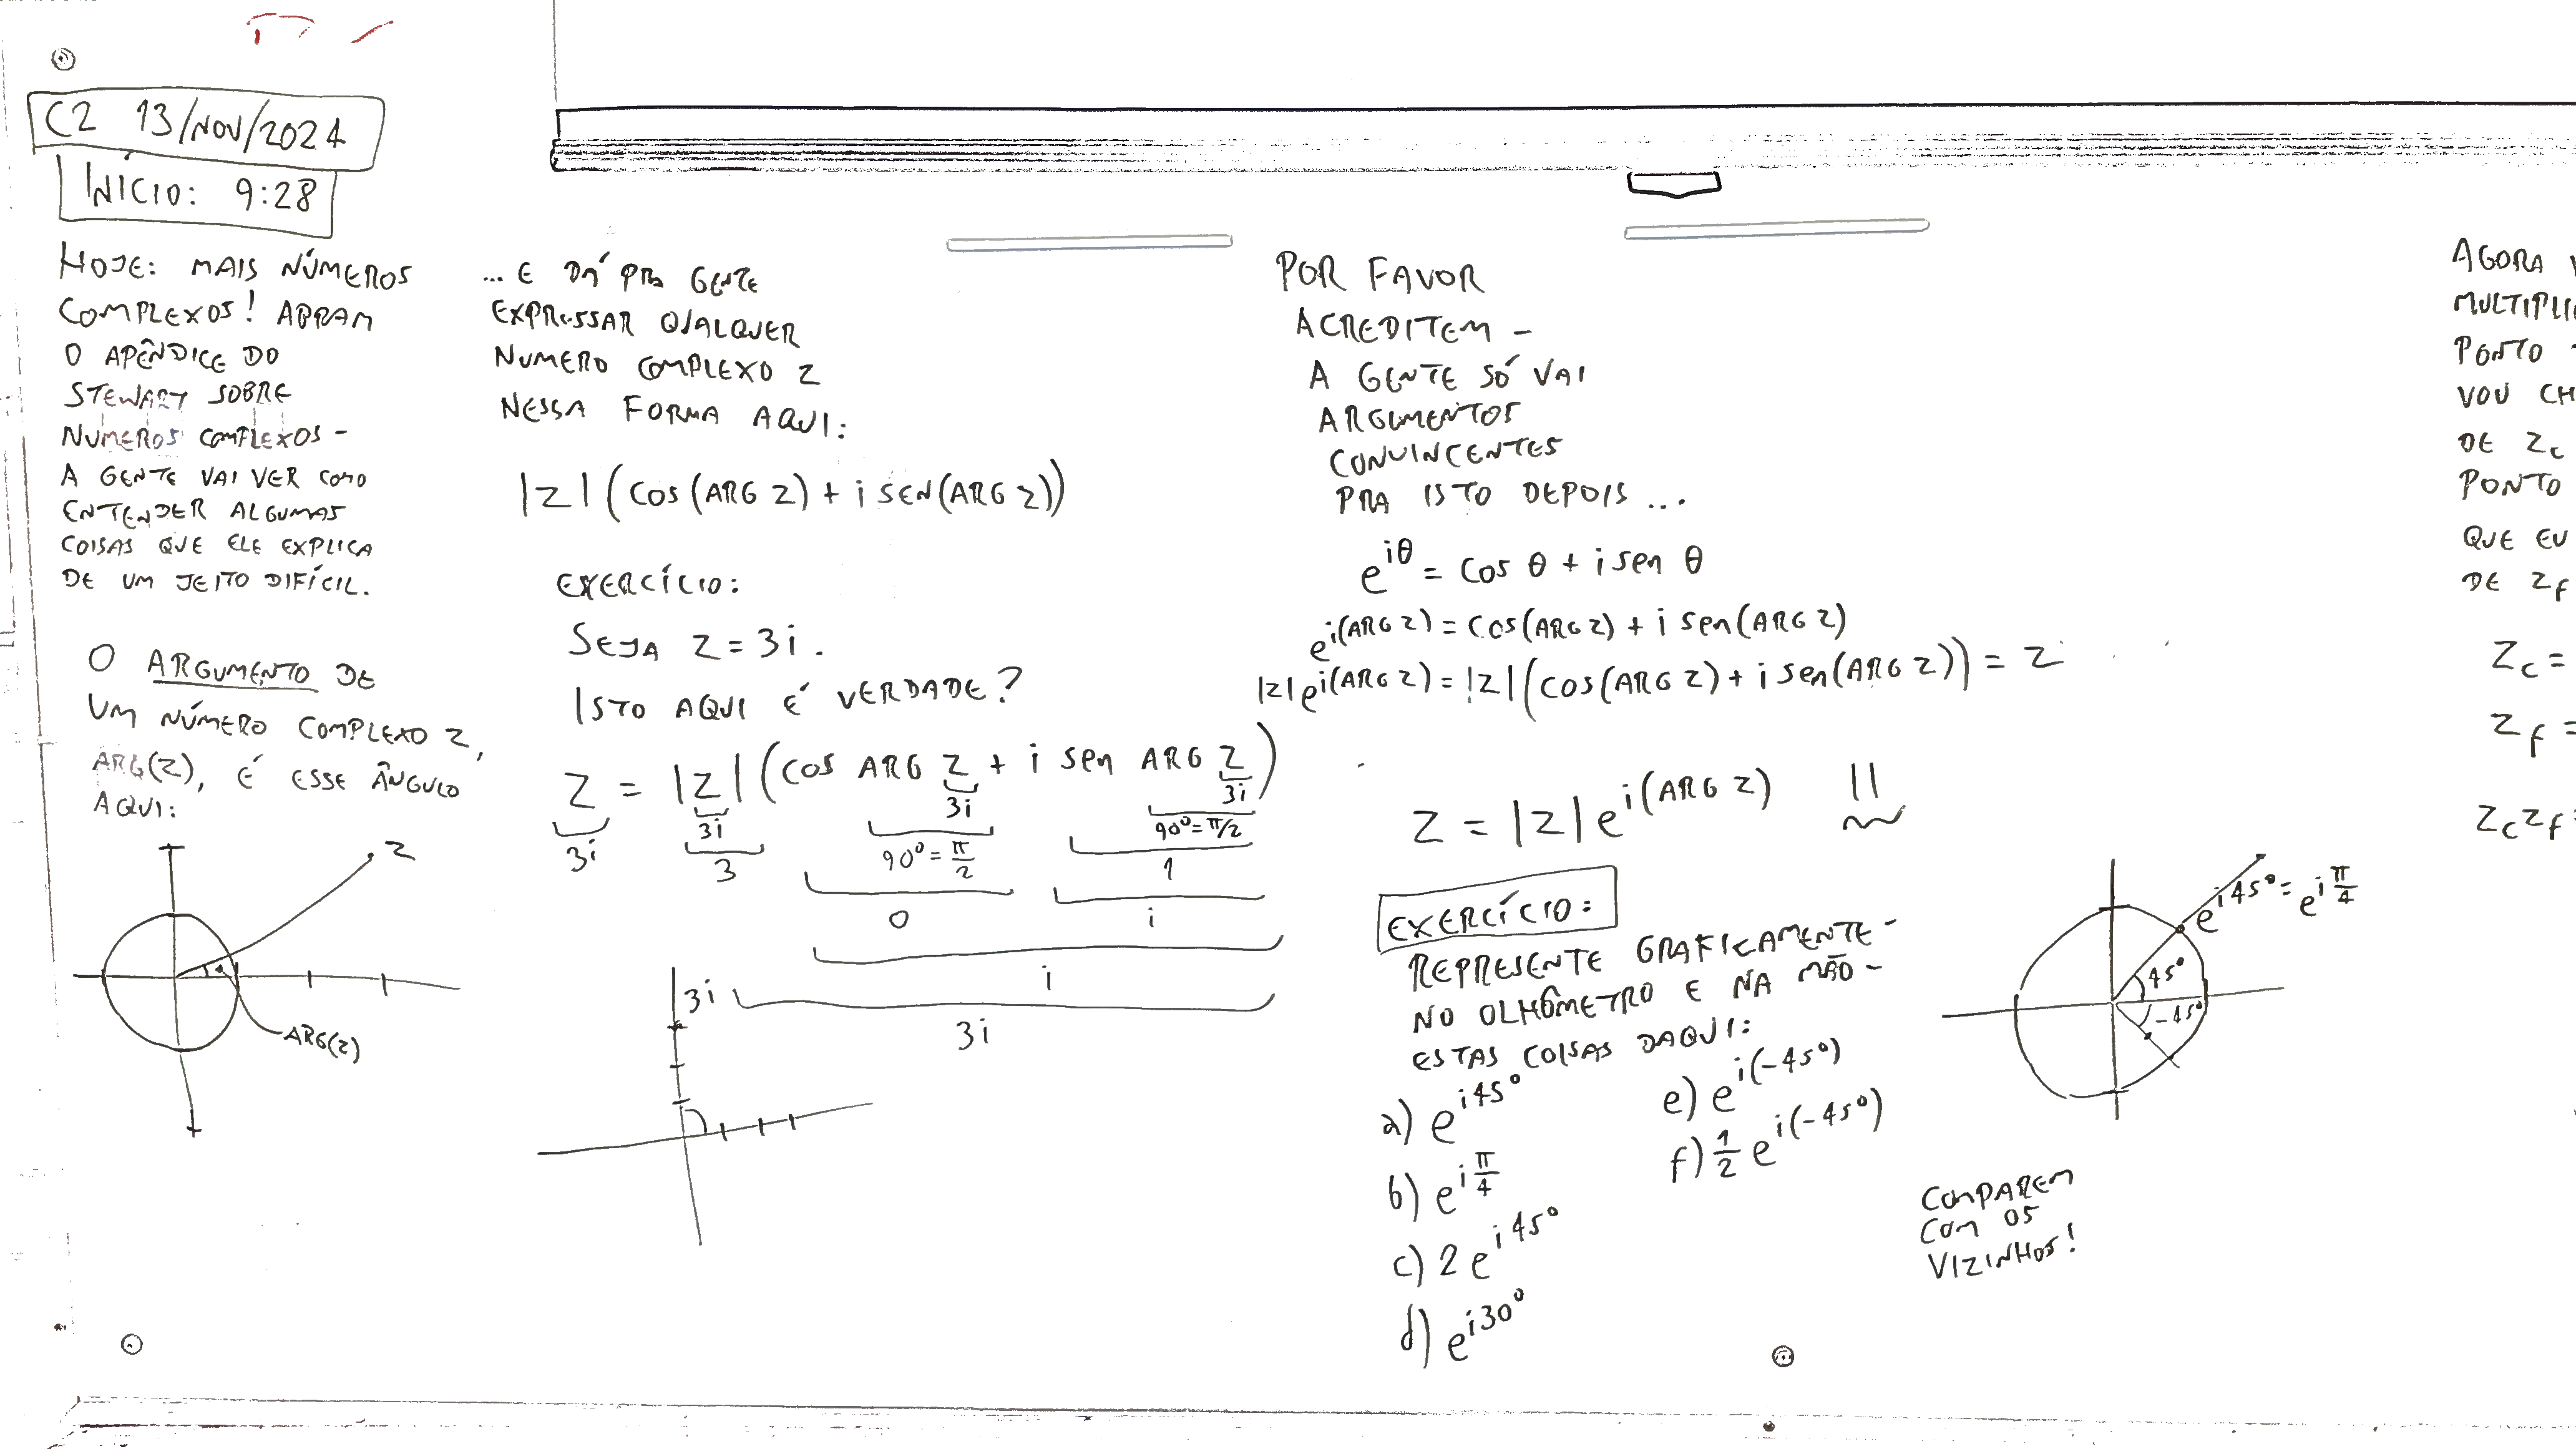 C2 13/NOV/2024
INÍCIO: 9:28
HOJE: MAIS NÚMEROS
COMPLEXOS! ABRAM
O APÊNDICE DO
STEWART SOBRE
NÚMEROS COMPLEXOS -
A GENTE VAI VER COMO
ENTENDER ALGUMAS
COISAS QUE ELE EXPLICA
DE UM JEITO DIFÍCIL.
O ARGUMENTO DE
UM NÚMERO COMPLEXO Z,
ARG(Z), É ESSE ÂNGULO
AQUI:
Z
ARG(Z)
... E DÁ PRA GENTE
EXPRESSAR QUALQUER
NUMERO COMPLEXO Z
NESSA FORMA AQUI:
|Z| (COS (ARG Z) + i SEN(ARG Z))
EXERCÍCIO:
SEJA Z = 3i.
ISTO AQUI É VERDADE?
Z = |Z| (COS ARG Z + i sen ARG Z)
3i 3i 3i 3i
3 90° = π/2 90° = π/2
1
0 i
i
3i
3i
POR FAVOR
ACREDITEM -
A GENTE SÓ VAI
ARGUMENTOS
CONVINCENTES
PRA ISTO DEPOIS ...
e^{iθ} = COS θ + i sen θ
e^{i(ARG Z)} = COS(ARG Z) + i sen(ARG Z)
|Z| e^{i(ARG Z)} = |Z| (COS(ARG Z) + i sen(ARG Z)) = Z
Z = |Z| e^{i(ARG Z)} !!
EXERCÍCIO:
REPRESENTE GRAFICAMENTE -
NO OLHÔMETRO E NA MÃO -
ESTAS COISAS DAQUI:
a) e^{i45°}
b) e^{i π/4}
c) 2 e^{i45°}
d) e^{i30°}
e) e^{i(-45°)}
f) 1/2 e^{i(-45°)}
e^{i45°} = e^{i π/4}
45°
-45°
COMPAREM
COM OS
VIZINHOS!
AGORA
MULTIPLI
PONTO
VOU CH
DE Z_C
PONTO
QUE EU
DE Z_F
Z_C =
Z_F =
Z_C Z_F =